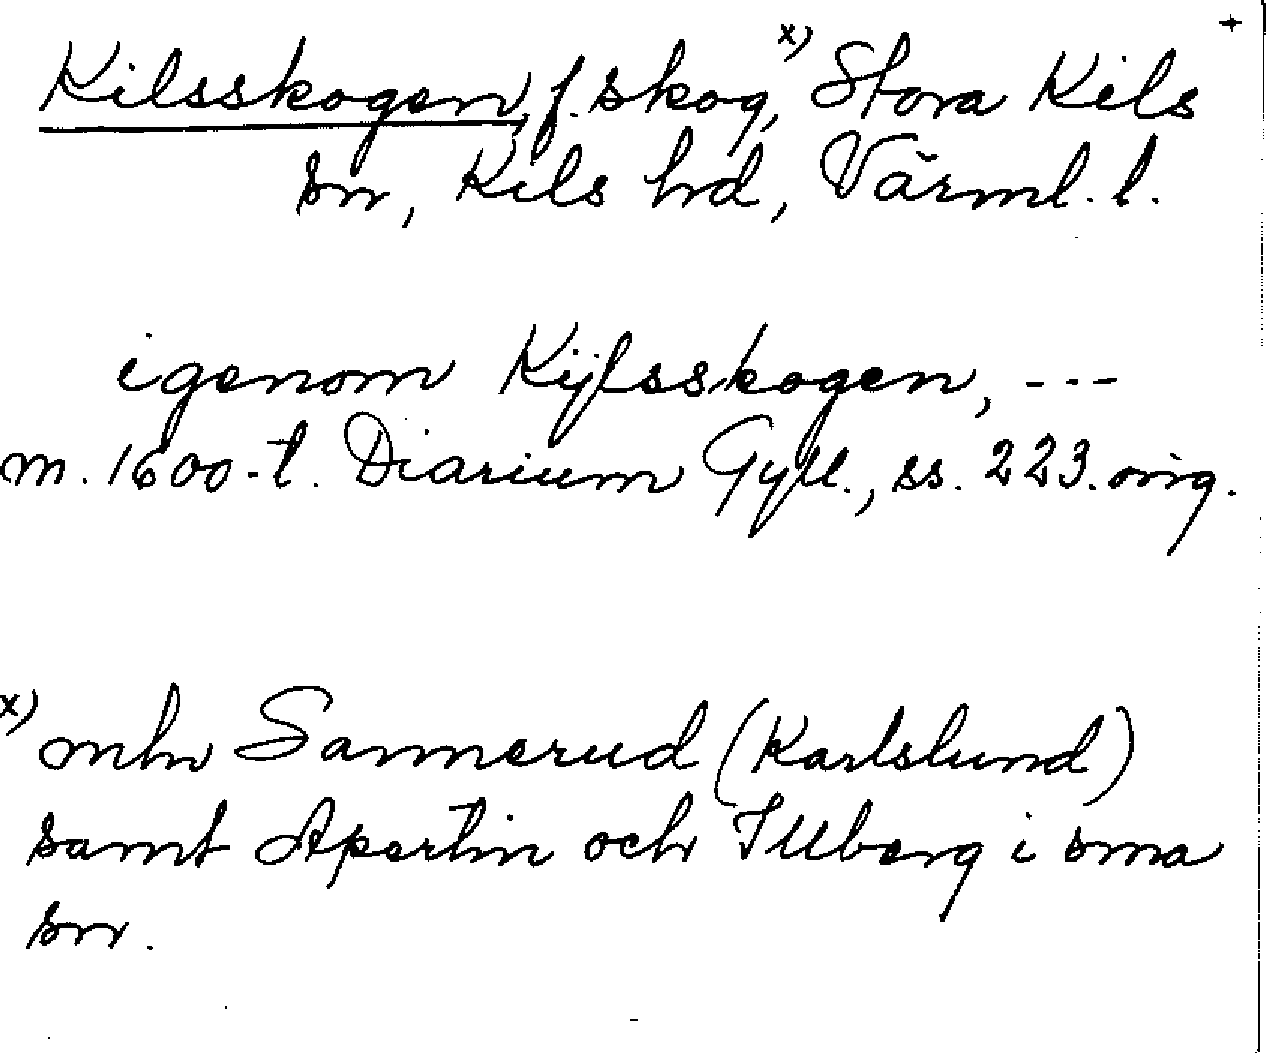 +
Kilsskogen, f. skog, x) Stora Kils
sn, Kils hd, Värml. l.
igenom Kijlsskogen, ---
m. 1600-t. Diarium Gyll., ss. 223. orig.
x) mln Sannerud (Karlslund)
samt Apertin och Illberg i sma
sn.